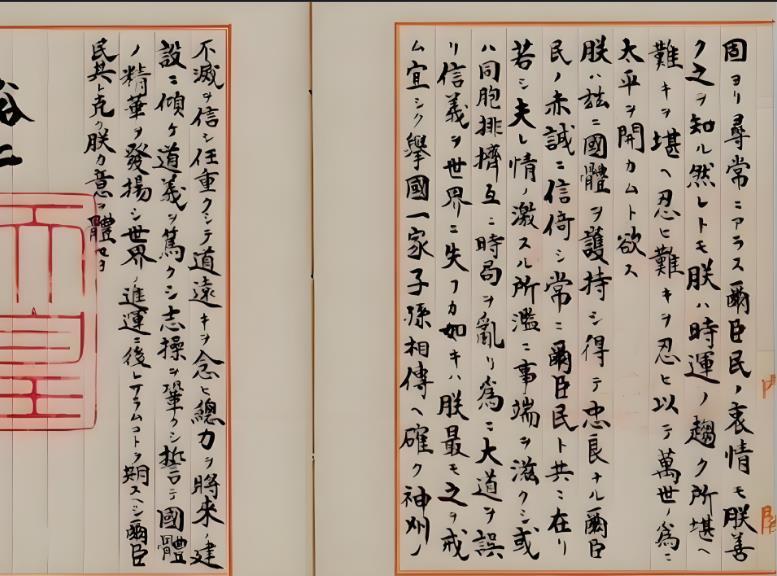 固ヨリ尋常ニアラス爾臣民ノ衷情モ朕善
ク之ヲ知ル然レトモ朕ハ時運ノ趨ク所堪ヘ
難キヲ堪ヘ忍ヒ難キヲ忍ヒ以テ萬世ノ爲ニ
太平ヲ開カムト欲ス
朕ハ玆ニ國體ヲ護持シ得テ忠良ナル爾臣
民ノ赤誠ニ信倚シ常ニ爾臣民ト共ニ在リ
若シ夫レ情ノ激スル所濫ニ事端ヲ滋クシ或
ハ同胞排擠互ニ時局ヲ亂リ爲ニ大道ヲ誤
リ信義ヲ世界ニ失フカ如キハ朕最モ之ヲ戒
ム宜シク擧國一家子孫相傳ヘ確ク神州ノ
不滅ヲ信シ任重クシテ道遠キヲ念ヒ總力ヲ將來ノ建
設ニ傾ケ道義ヲ篤クシ志操ヲ鞏クシ誓テ國體
ノ精華ヲ發揚シ世界ノ進運ニ後レサラムコトヲ期スヘシ爾臣
民其レ克ク朕カ意ヲ體セヨ
天皇